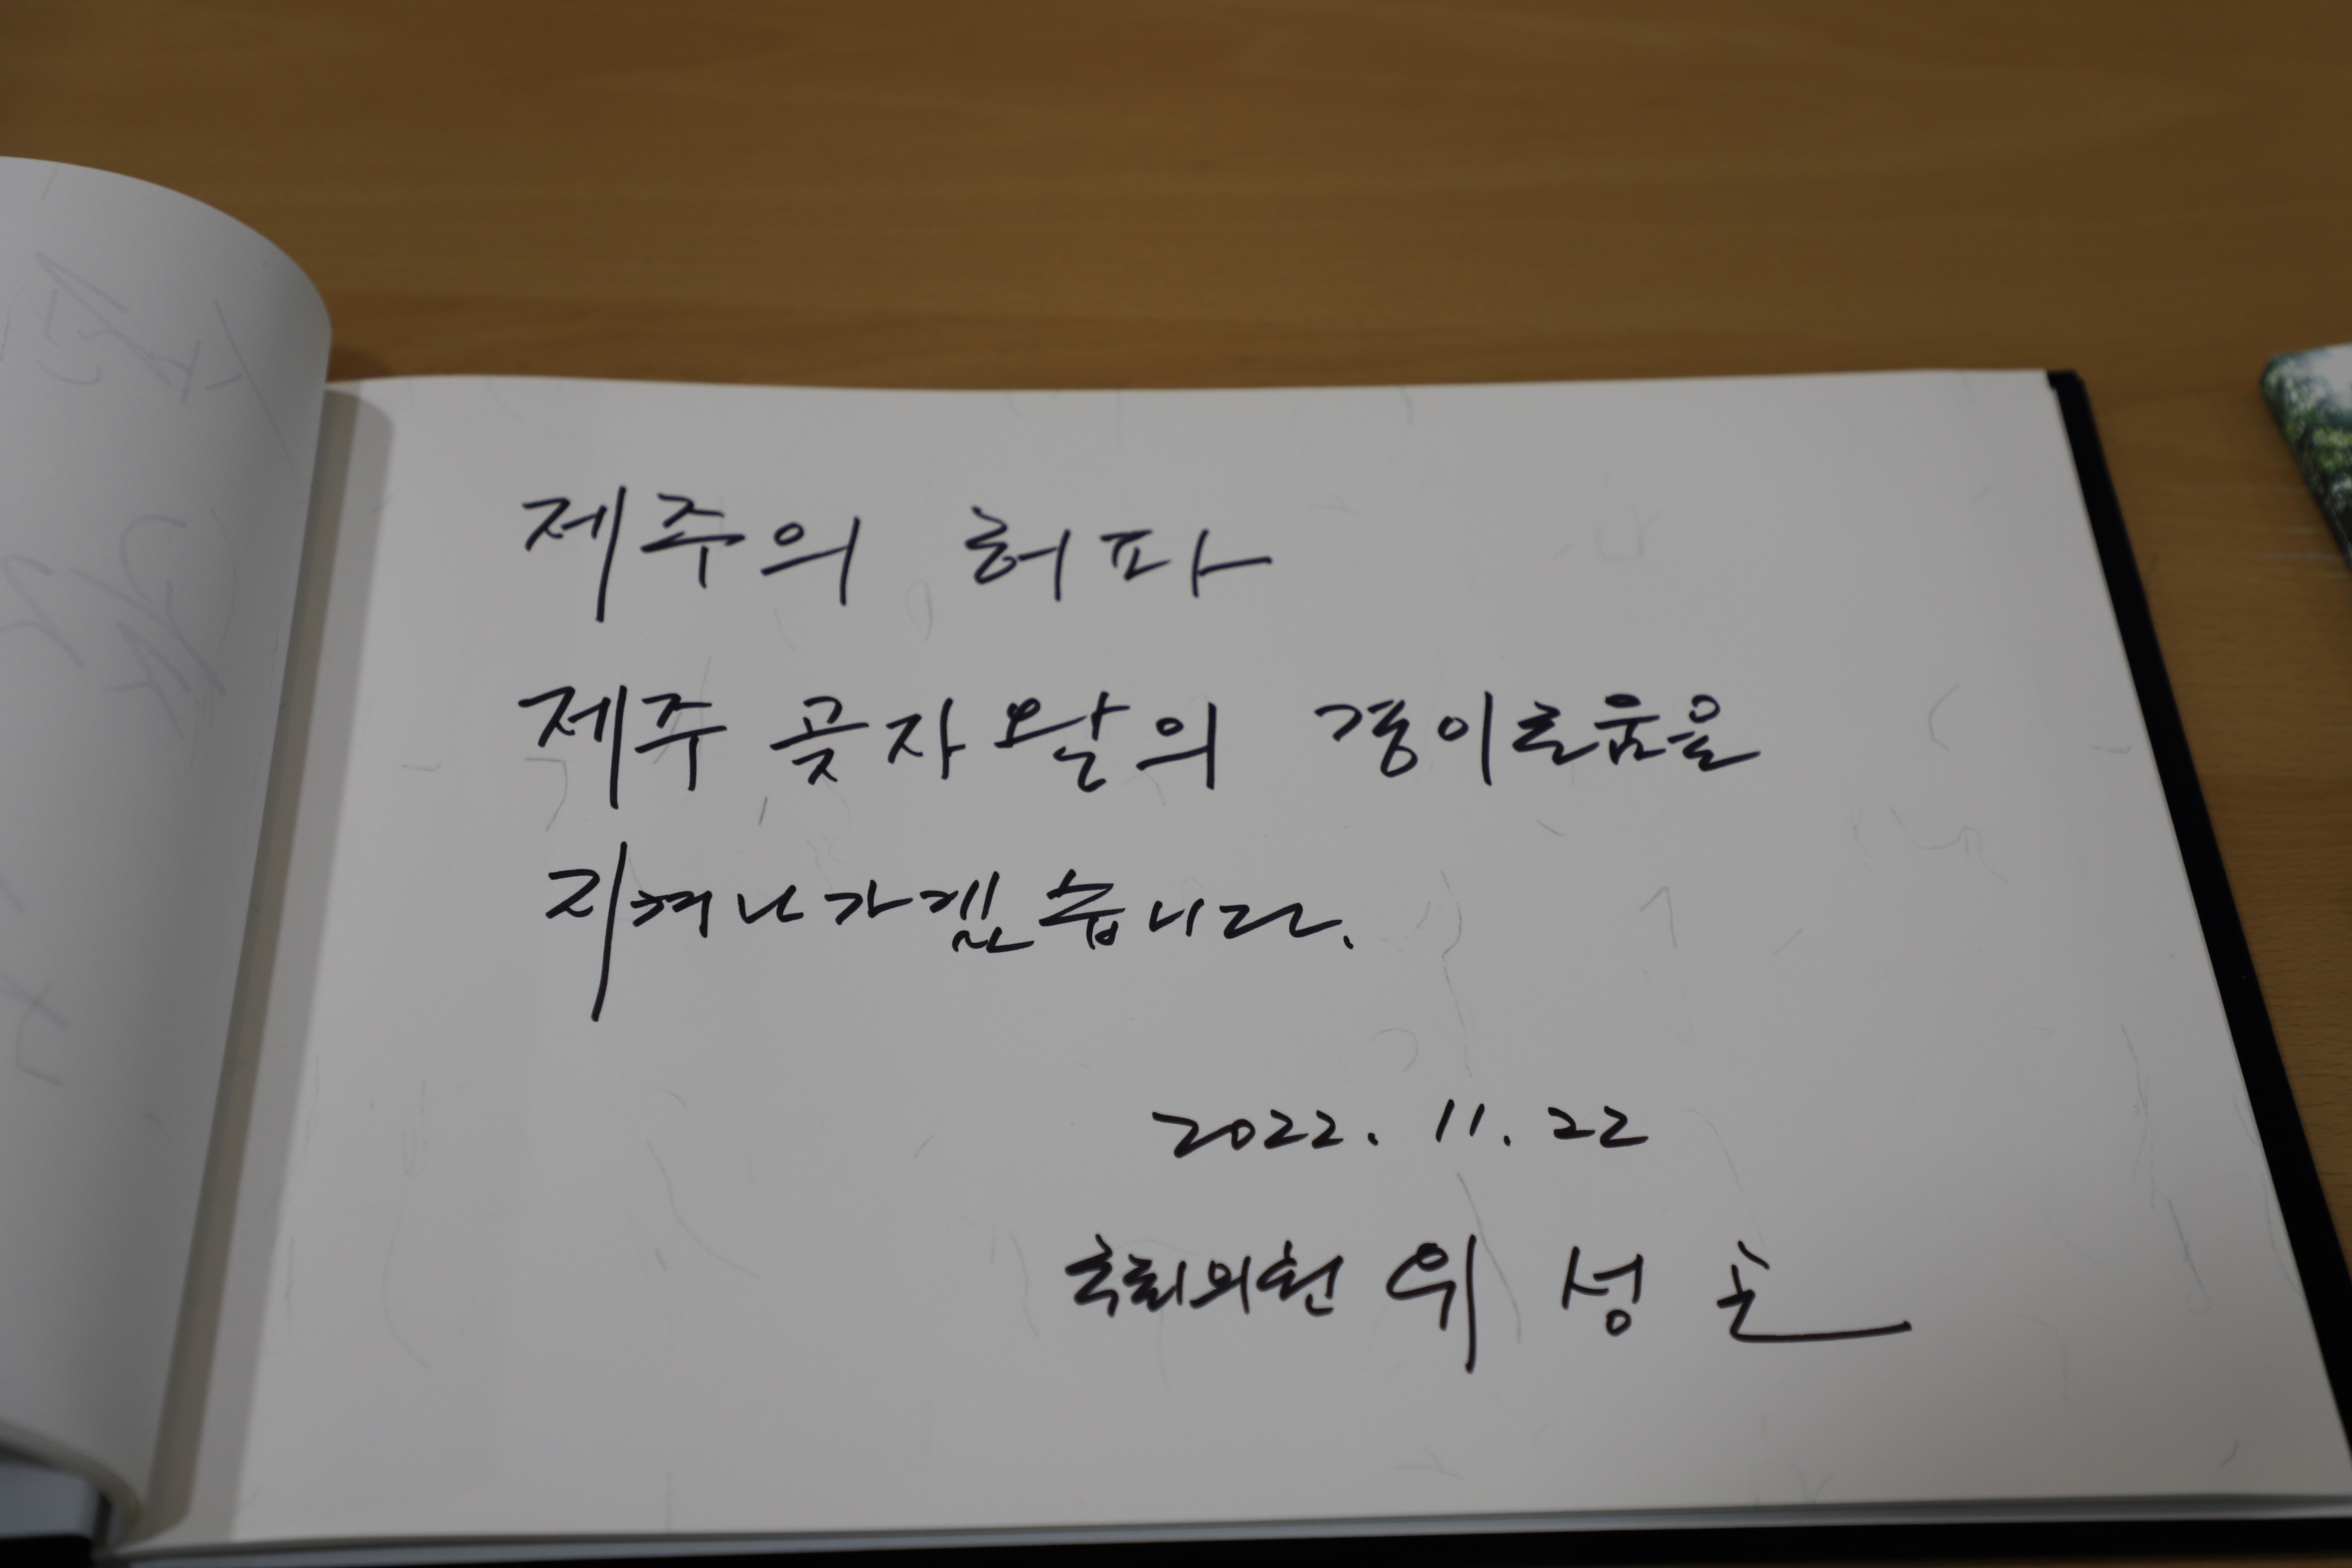 제주의 허파
제주 곶자왈의 경이로움을
지켜나가겠습니다.
2022. 11. 22
국회의원 위 성 곤